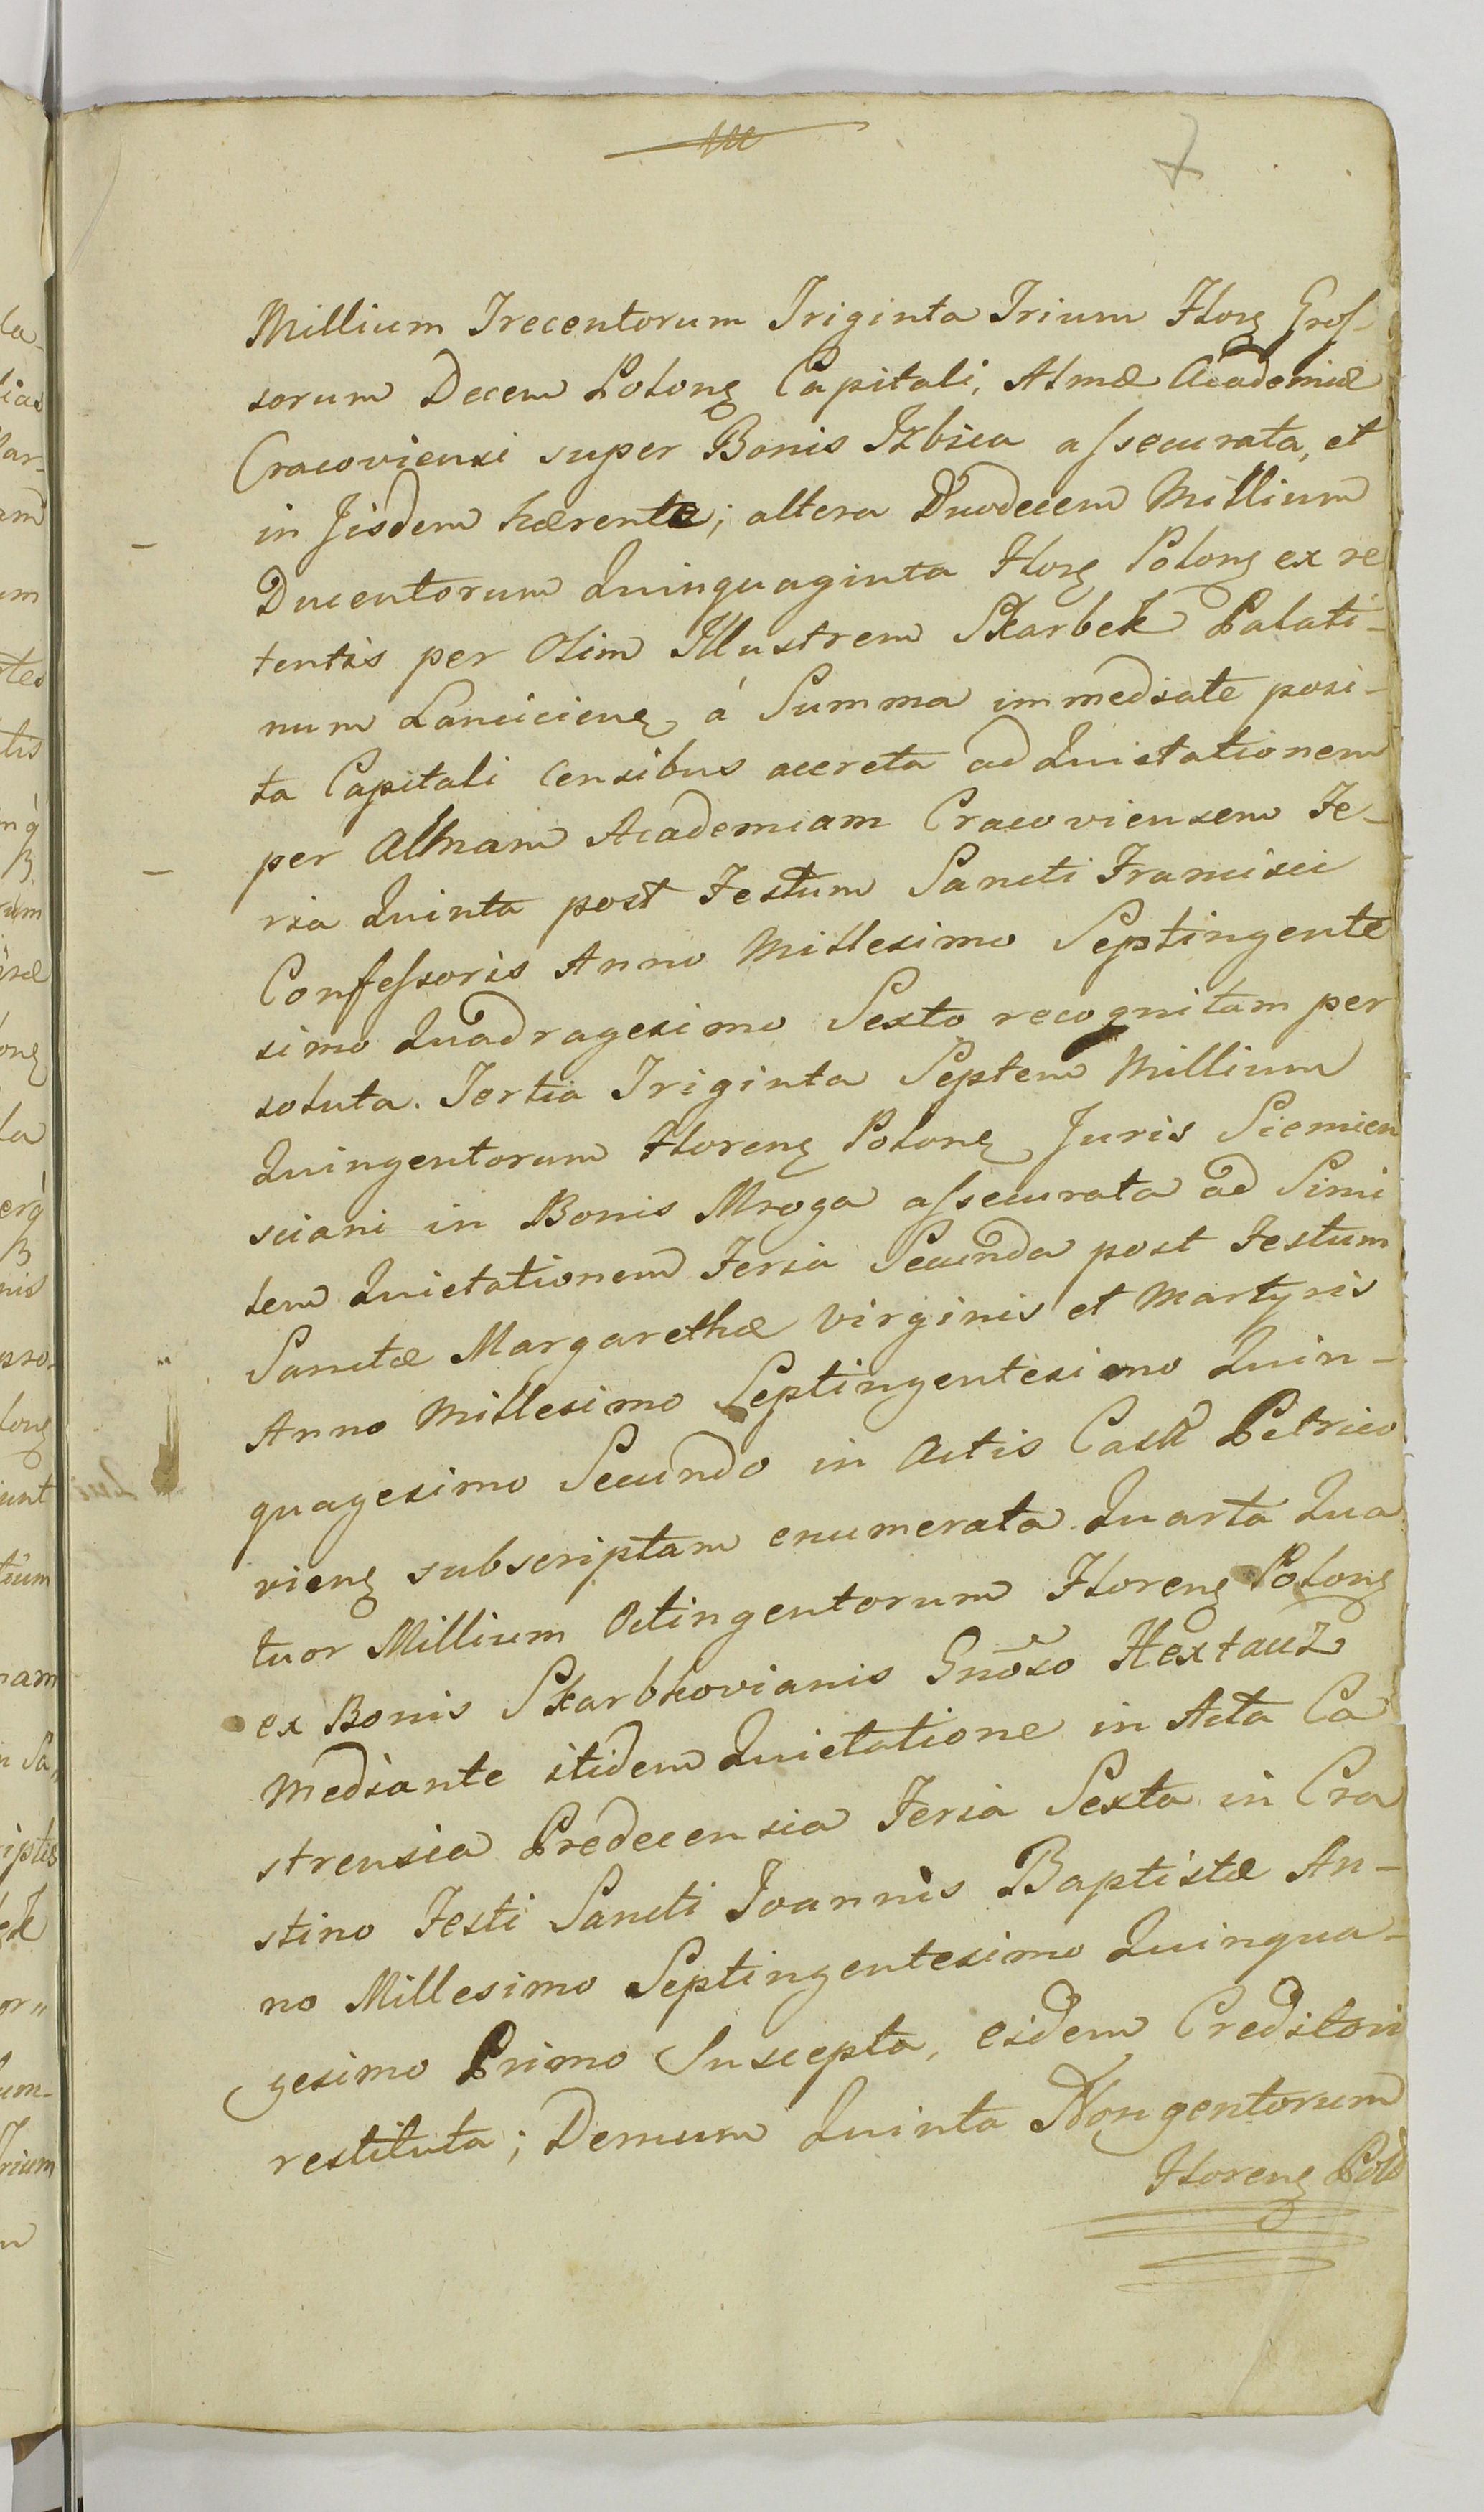 7
Millium Trecentorum Triginta Trium Floṛ Gros-
sorum Decem Polonꝫ Capitali, Almæ Academiæ
Cracoviensi super Bonis Izbica assecurata, et
in Jisdem hærente; altera Duodecem Millium
Ducentorum Quinquaginta Florꝫ Polonꝫ ex re
tentis per Olim Illustrem Skarbek Palati-
num Lanciciensꝫ á Summa immediate posi-
ta Capitali Censibus accreta ad Quietationem
per Almam Academiam Cracoviensem Fe-
ria Quinta post Festum Sancti Francisci
Confessoris Anno Millesimo Septingente
simo Quadragesimo Sexto recognitam per
soluta. Tertia Triginta Septem Millium
Quingentorum Florenꝫ Polonꝫ Juris Siemien
sciani in Bonis Mroga assecurata ad Simi
lem Quietationem Feria Secunda post Festum
Sanctæ Margarethæ Virginis et Martyris
Anno Millesimo Septingentesimo Quin-
quagesimo Secundo in Actis Castr Petrico
vienꝫ subscriptam enumerata. Quarta Qua
tuor Millium Octingentorum Florenꝫ Polonꝫ
ex Bonis Skarbkovianis Gnoso
Mediante itidem Quietatione in Acta Ca
strensia Predecensia Feria Sexta in Cra
stino Festi Sancti Joannis Baptistæ An-
no Millesimo Septingentesimo Quinqua-
gesimo Primo Suscepta, eidem Creditori
restituta; Demum Quinta Nongentorum
Florenꝫ Pol